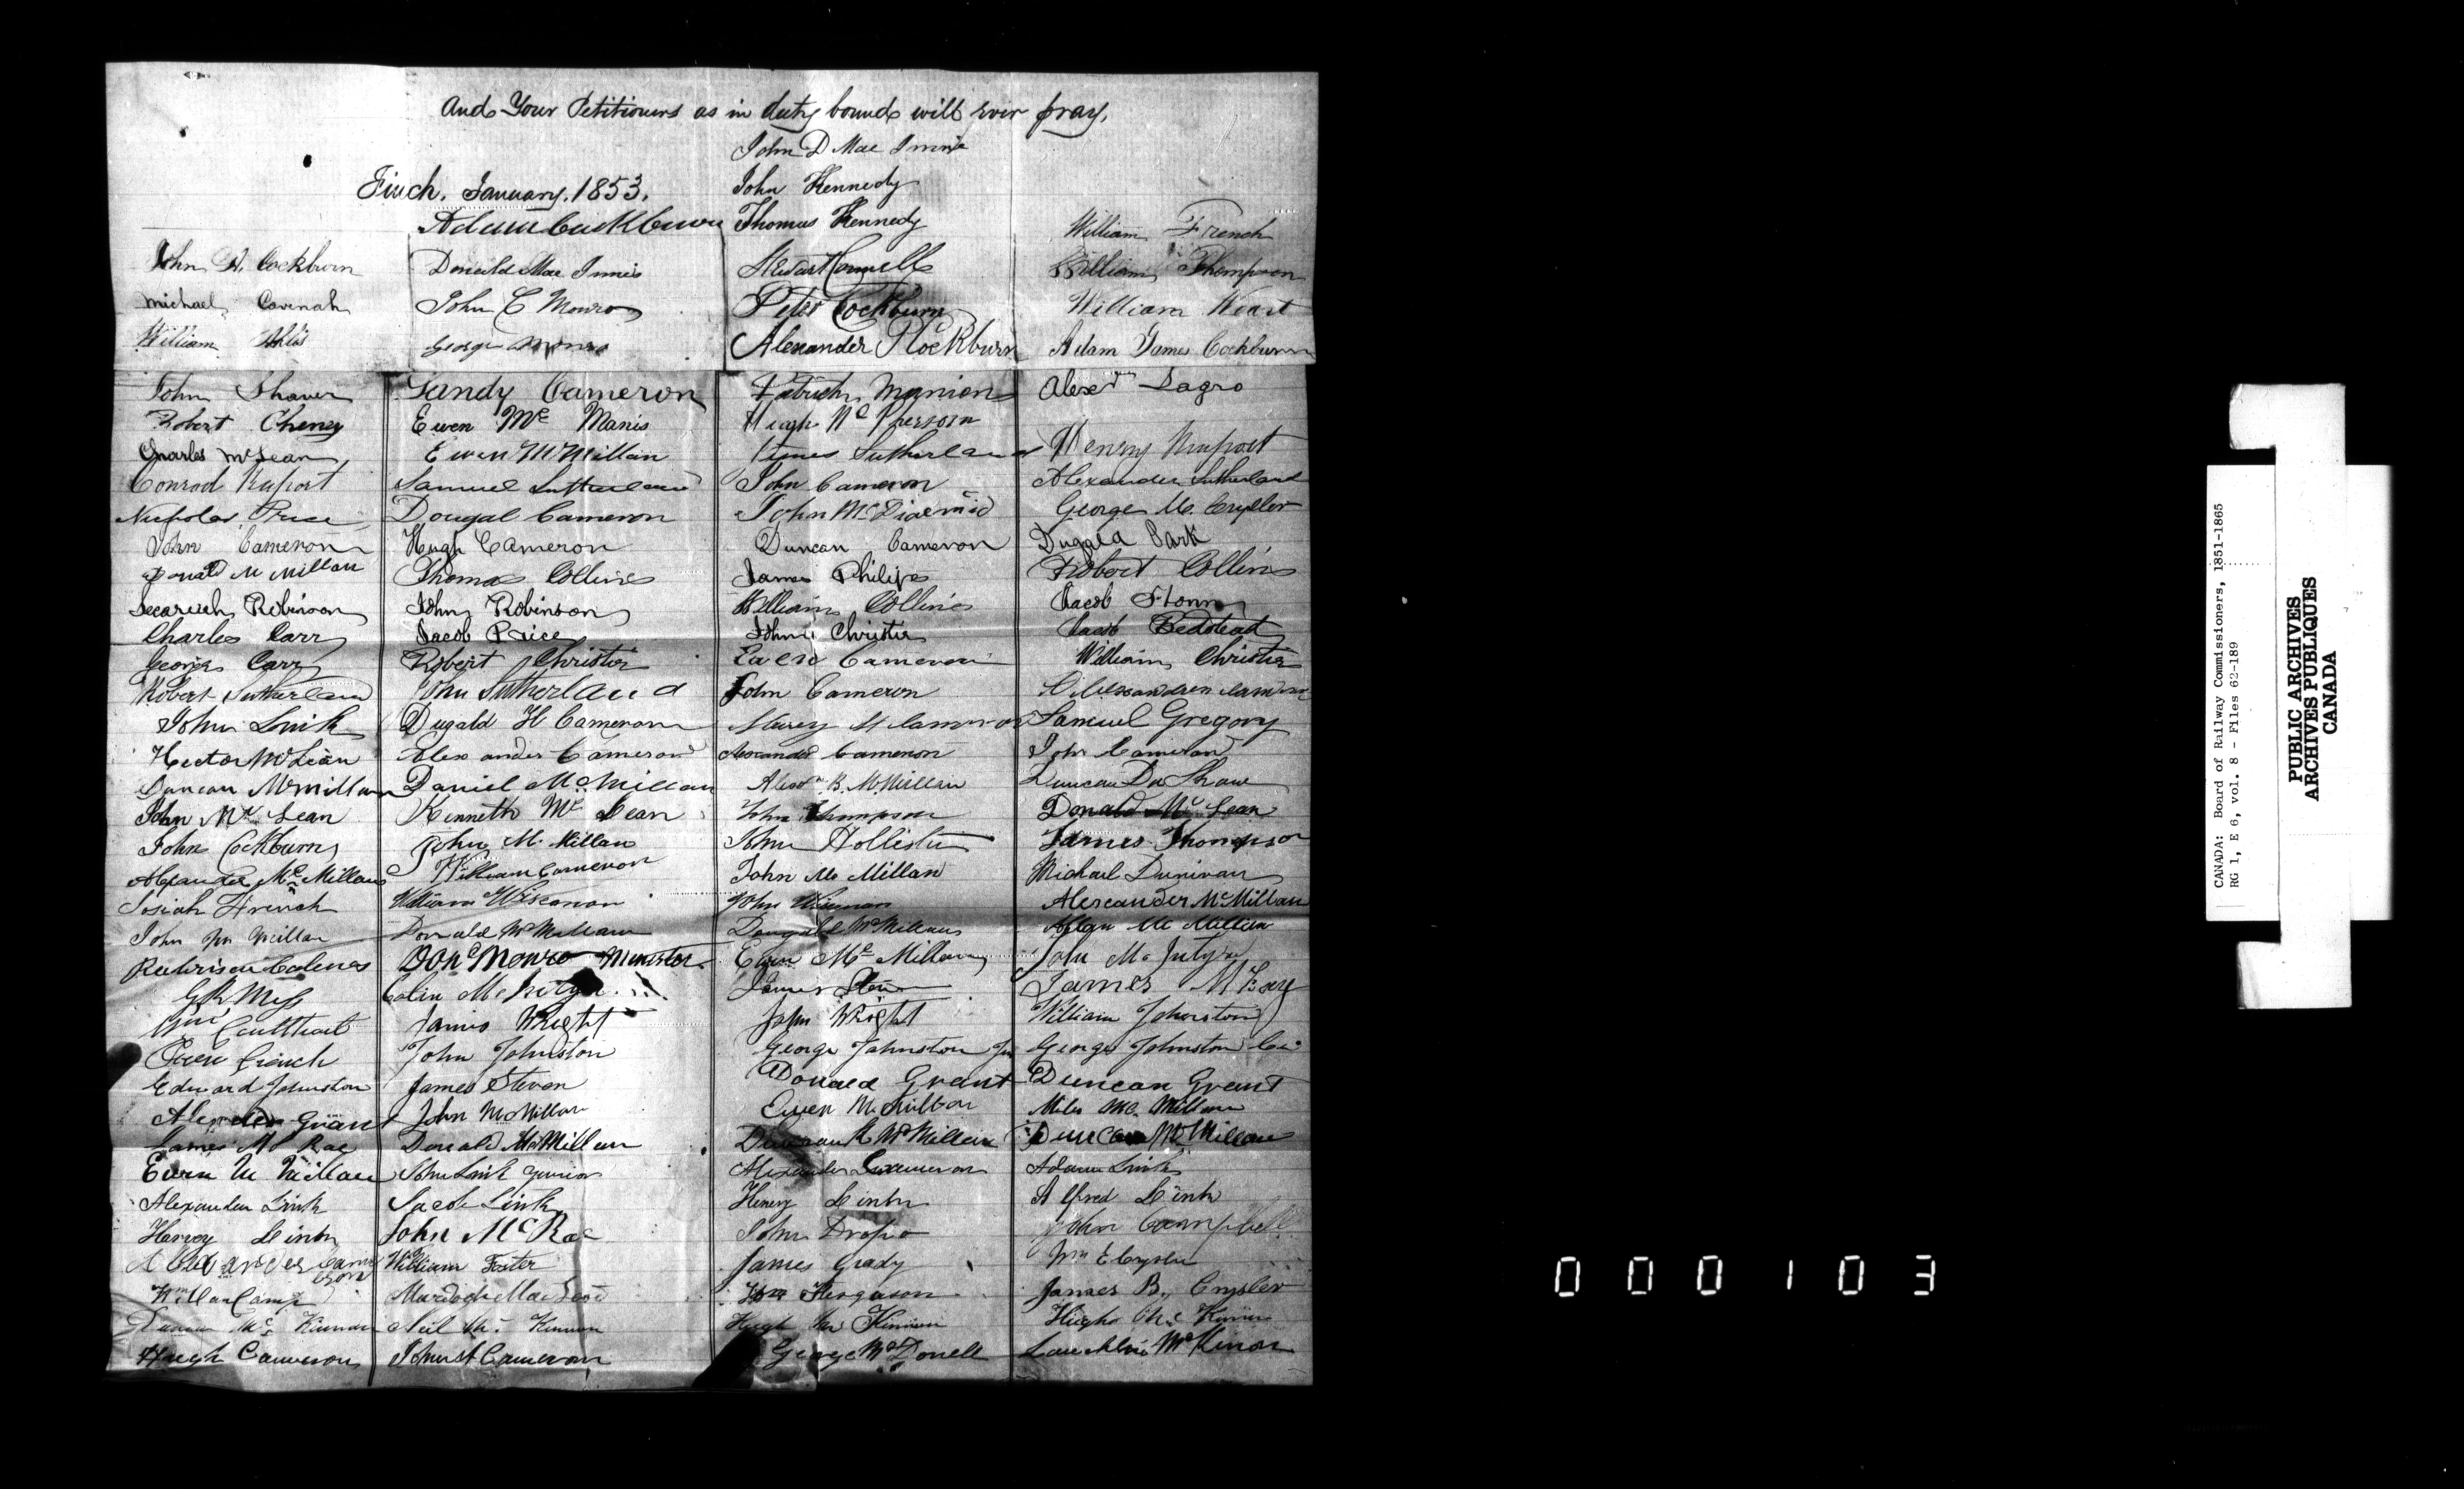 And Your Petitioners as in duty bound will ever pray.
Finch, January, 1853.
John D Mac Innis
John Kennedy
Thomas Kennedy
William French
John A. Cockburn
Donald Mac Innis
William Thompson
Michael Cavenah
John C Monro
Peter Cockburn
William Weart
William
George Monro
Alexander P Cockburn
Adam James Cockburn
John Shaver
Sandy Cameron
Patrick Manion
Alexr Lagro
Robert Cheney
Ewen Mc Manis
Hugh Mc Pherson
Charles McLean
Ewen McMillan
James Sutherland
Henry Ruport
Conrod Ruport
Samuel Sutherland
John Cameron
Alexander Sutherland
Nicholas Price
Dougal Cameron
John McDiarmid
George M. Crysler
John Cameron
Hugh Cameron
Duncan Cameron
Dugald Park
Donald McMillan
Thomas Collins
James Philips
Robert Collins
Robinson
John Robinson
William Collins
Jacob
Charles Carr
Jacob Price
John Christie
Jacob Bedstead
George Carr
Robert Christie
Ewen Cameron
William Christie
Robert Sutherland
John Sutherland
John Cameron
Alexander Cameron
John Link
Dugald H Cameron
Cameron
Samuel Gregory
Hector McLean
Alexander Cameron
Alexander Cameron
John Cameron
Duncan McMillan
Daniel McMillan
Alexr B. McMillan
Duncan Shaw
John Mc Lean
Kenneth Mc Lean
John Thompson
Donald Mc Lean
John Cockburn
John McMillan
John Hollister
James Thompson
Alexander McMillan
William Cameron
John Mc Millan
Michael Dunivan
Josiah French
William Wiseman
John Wiseman
Alexander McMillan
John McMillan
Donald McMillan
Dougald McMillan
Allan Mc Millan
Don Monro Minister
Ewen McMillan
John McIntyre
Colin McIntyre
James
James
James Wright
John Wright
William Johnston
John Johnston
George Johnston Jun
George Johnston
Edward Johnston
James Steven
Donald Grant
Duncan Grant
Alexander Grant
John McMillan
Ewen McMillan
Miles Mc Millan
James Mc Rae
Donald McMillan
Duncan McMillan
Duncan McMillan
Ewen McMillan
John Link junior
Alexander Cameron
Adam Link
Alexander Link
Jacob Link
Henry Link
Alfred Link
Harvey Link
John McRae
John
John Campbell
Alexander Cameron
William Foster
James Grady
Wm E Crysler
Wm VanCamp
Murdoch MacLeod
Wm Ferguson
James B. Crysler
Mc Kinnon
Neil Mc Kinnon
Hugh Mc Kinnon
Hugh Mc Kinnon
Hugh Cameron
John A Cameron
George McDonell
Lauchlin McKinon
000103
CANADA: Board of Railway Commissioners, 1851-1865
RG 1, E 6, vol. 8 - Files 62-189
PUBLIC ARCHIVES
ARCHIVES PUBLIQUES
CANADA